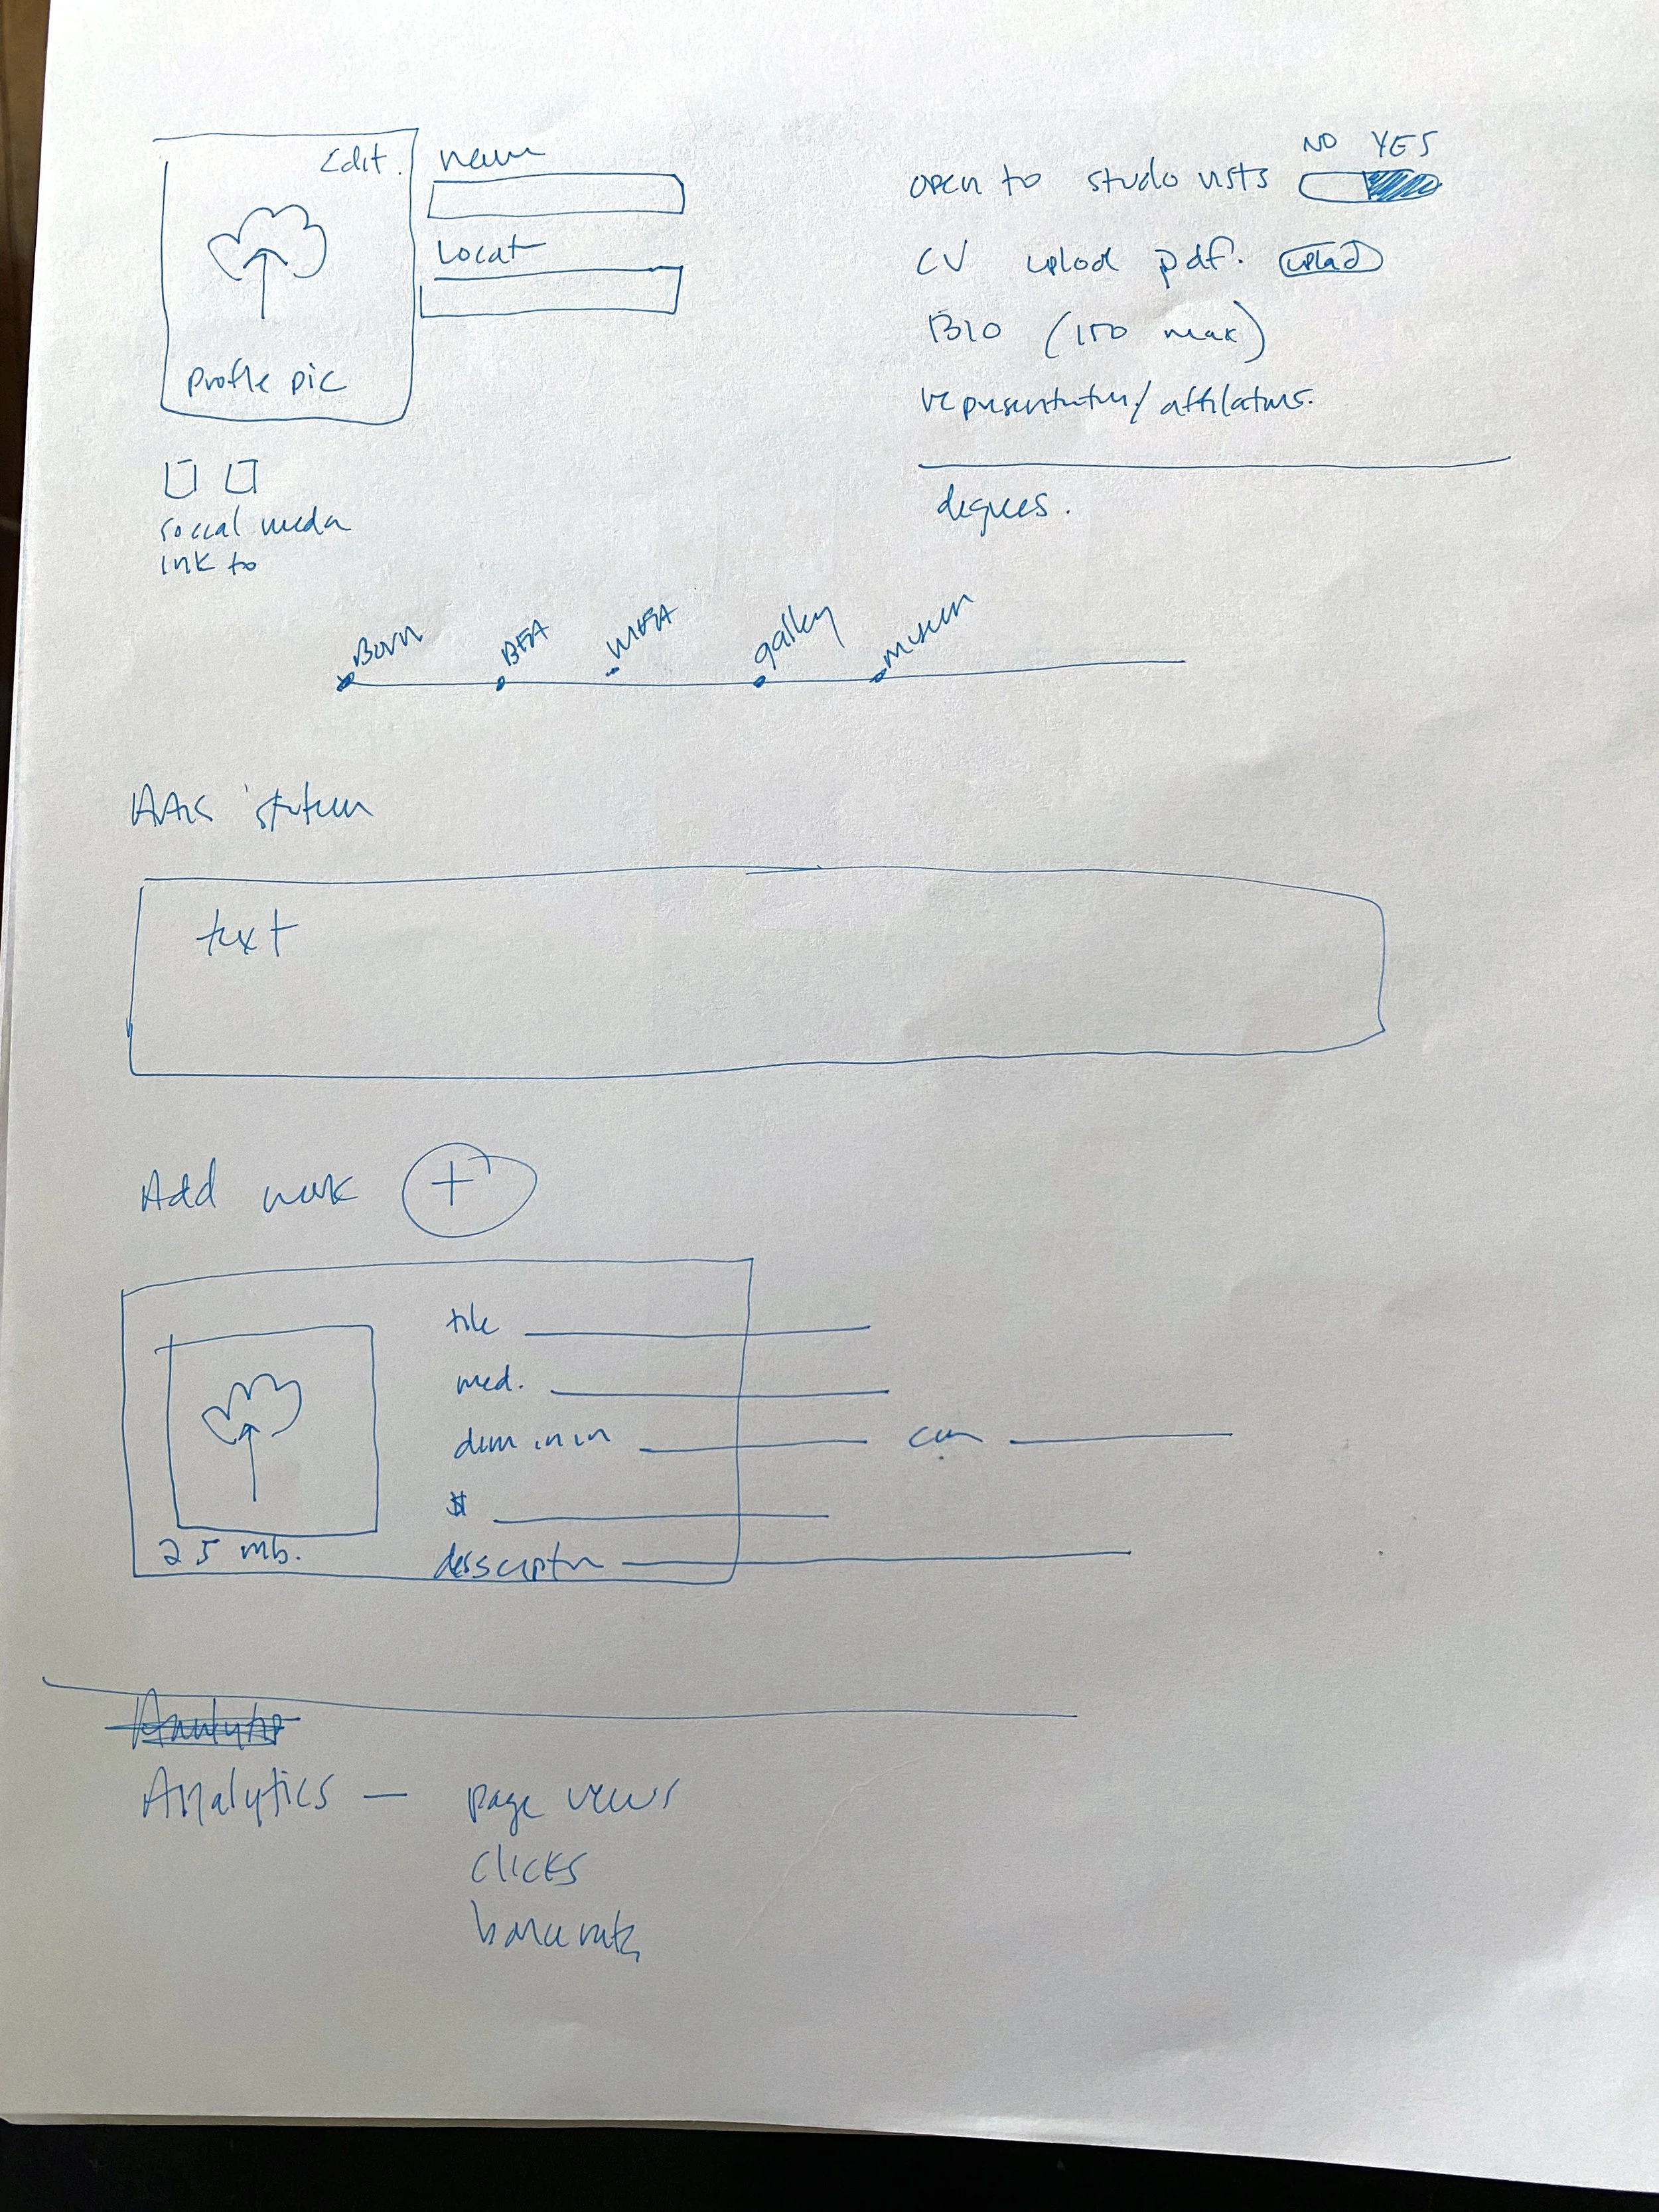 Edit.
name
Locat
profile pic
NO YES
open to studio visits
CV upload pdf. upload
BIO (150 max)
representation/affiliations.
degrees.
social media
link to
Born BFA MFA gallery museum
text
Add work +
title
med.
dim in in cm
$
25 mb.
description
Analytics — page views
clicks
bounce rate